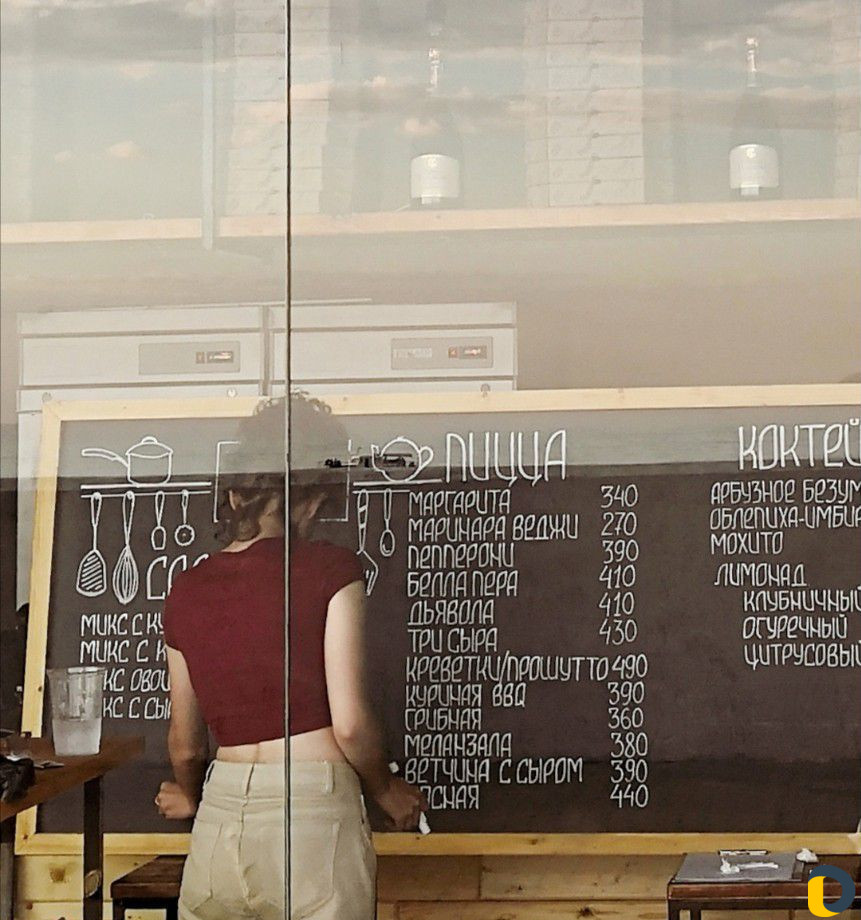 ПИЦЦА
МАРГАРИТА 340
МАРИНАРА ВЕДЖИ 270
ПЕППЕРОНИ 390
БЕЛЛА ПЕРА 410
ДЬЯВОЛА 410
ТРИ СЫРА 430
КРЕВЕТКИ/ПРОШУТТО 490
КУРИНАЯ BBQ 390
ГРИБНАЯ 360
МЕЛАНЗАЛА 380
ВЕТЧИНА С СЫРОМ 390
440
КОКТЕЙ
АРБУЗНОЕ БЕЗУМ
ОБЛЕПИХА-ИМБИ
МОХИТО
ЛИМОНАД
КЛУБНИЧНЫЙ
ОГУРЕЧНЫЙ
ЦИТРУСОВЫЙ
МИКС С
МИКС С